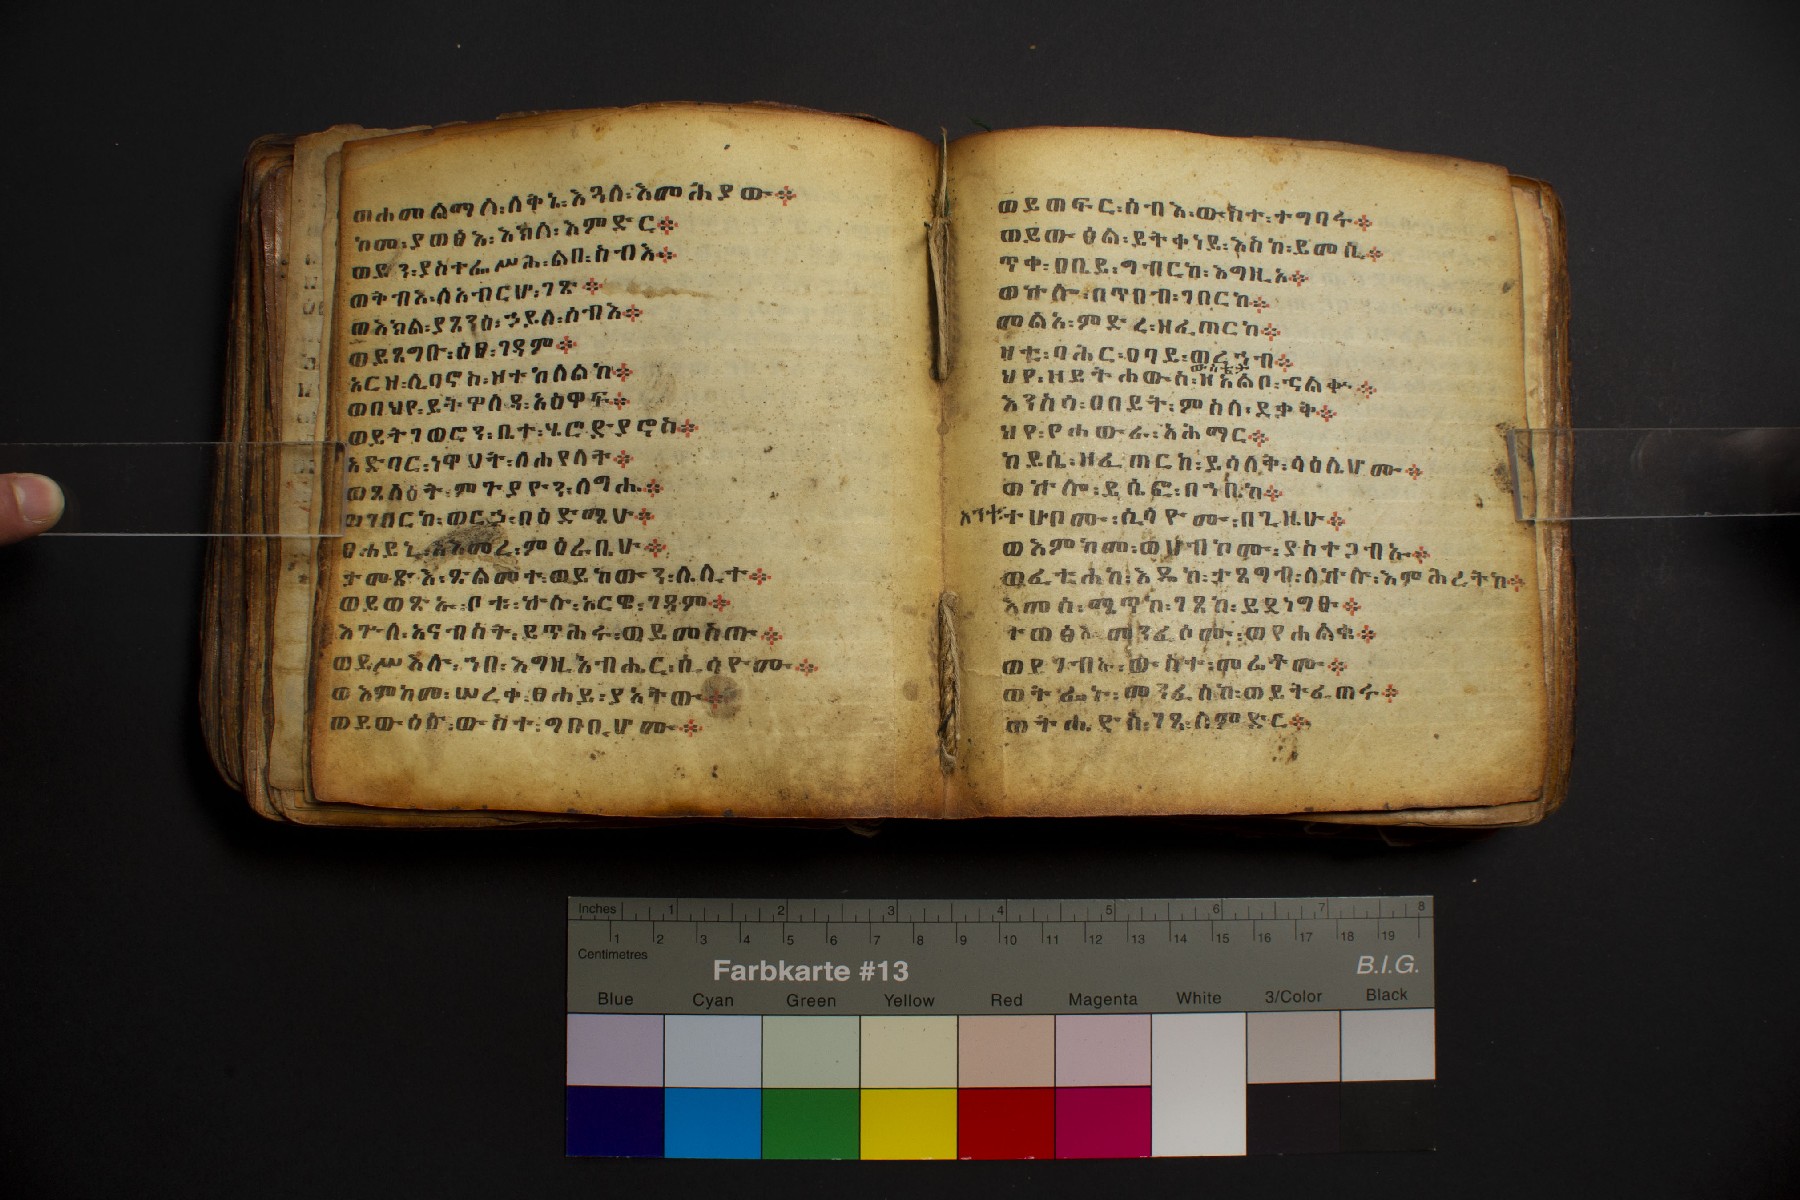 ወሐመልማለ፡ለቅኔ፡እጓለ፡እመሕያው፨
ከመ፡ያወፅእ፡እክለ፡እምድር፨
ወይን፡ያስተፌሥሕ፡ልበ፡ስብእ፨
ወቅብእ፡ለአብርሆ፡ገጽ፨
ወእክል፡ያጸንዕ፡ኃይለ፡ሰብእ፨
ወይጸግቡ፡ዕፀ፡ገዳም፨
አርዝ፡ሊባኖስ፡ዘተከለልከ፨
ወበህየ፡ይትዋለዳ፡አዕዋፍ፨
ወይትገወሮን፡ቤተ፡ሄሮድያኖስ፨
አድባር፡ነዋኀት፡ለሐየላት፨
ወጸላዕት፡ምጕያዮን፡ለግሔ፨
ወገበርከ፡ወርኃ፡በዕድሜሁ፨
ፀሐይኒ፡አእመረ፡ምዕራቢሁ፨
ታመጽእ፡ጽልመተ፡ወይከውን፡ሌሊተ፨
ወይወጽኡ፡ቦቱ፡ኵሉ፡አርዌ፡ገዳም፨
እጕለ፡አናብስት፡ይጥሕሩ፡ወይመስጡ፨
ወይሥእሉ፡ኀበ፡እግዚእብሔር፡ሲሳዮሙ፨
ወእምከመ፡ሠረቀ፡ፀሐይ፡ያአትው፨
ወይውዕሉ፡ውስተ፡ግበቢሆሙ፨
ወይወፍር፡ሰብእ፡ውስተ፡ተግባሩ፨
ወይውዕል፡ይትቀነይ፡እስከ፡ይመሲ፨
ጥቀ፡ዐቢይ፡ግብርከ፡እግዚአ፨
ወኵሎ፡በጥበብ፡ገበርከ፨
መልአ፡ምድረ፡ዘፈጠርከ፨
ዛቲ፡ባሕር፡ዐባይ፡ወረኃብ፨
ውስቴታ
ህየ፡ዘይትሐወስ፡ዘአልቦ፡ኍልቍ፨
እንስሳ፡ዐበይት፡ምስለ፡ደቃቅ፨
ህየ፡የሐውራ፡አሕማር፨
ከይሲ፡ዘፈጠርከ፡ይሳለቅ፡ላዕሌሆሙ፨
ወኵሎ፡ይሴፎ፡በኀቤከ፨
አንተ፡ተሁቦሙ፡ሲሳዮሙ፡በጊዜሁ፨
ወእምከመ፡ወሀብኮሙ፡ያስተጋብኡ፨
ወፈቲሐከ፡እዴከ፡ታጸግብ፡ለኵሉ፡እምሕረትከ፨
እመሰ፡ሜጥከ፡ገጸከ፡ይደነግፁ፨
ተወፅእ፡መንፈሶሙ፡ወየሐልቁ፨
ወየገብኡ፡ውስተ፡መሬቶሙ፨
ወትፌኑ፡መንፈስከ፡ወይትፈጠሩ፨
ወትሔድስ፡ገጸ፡ለምድር፨
Inches 1 2 3 4 5 6 7 8
1 2 3 4 5 6 7 8 9 10 11 12 13 14 15 16 17 18 19
Centimetres
Farbkarte #13
B.I.G.
Blue Cyan Green Yellow Red Magenta White 3/Color Black